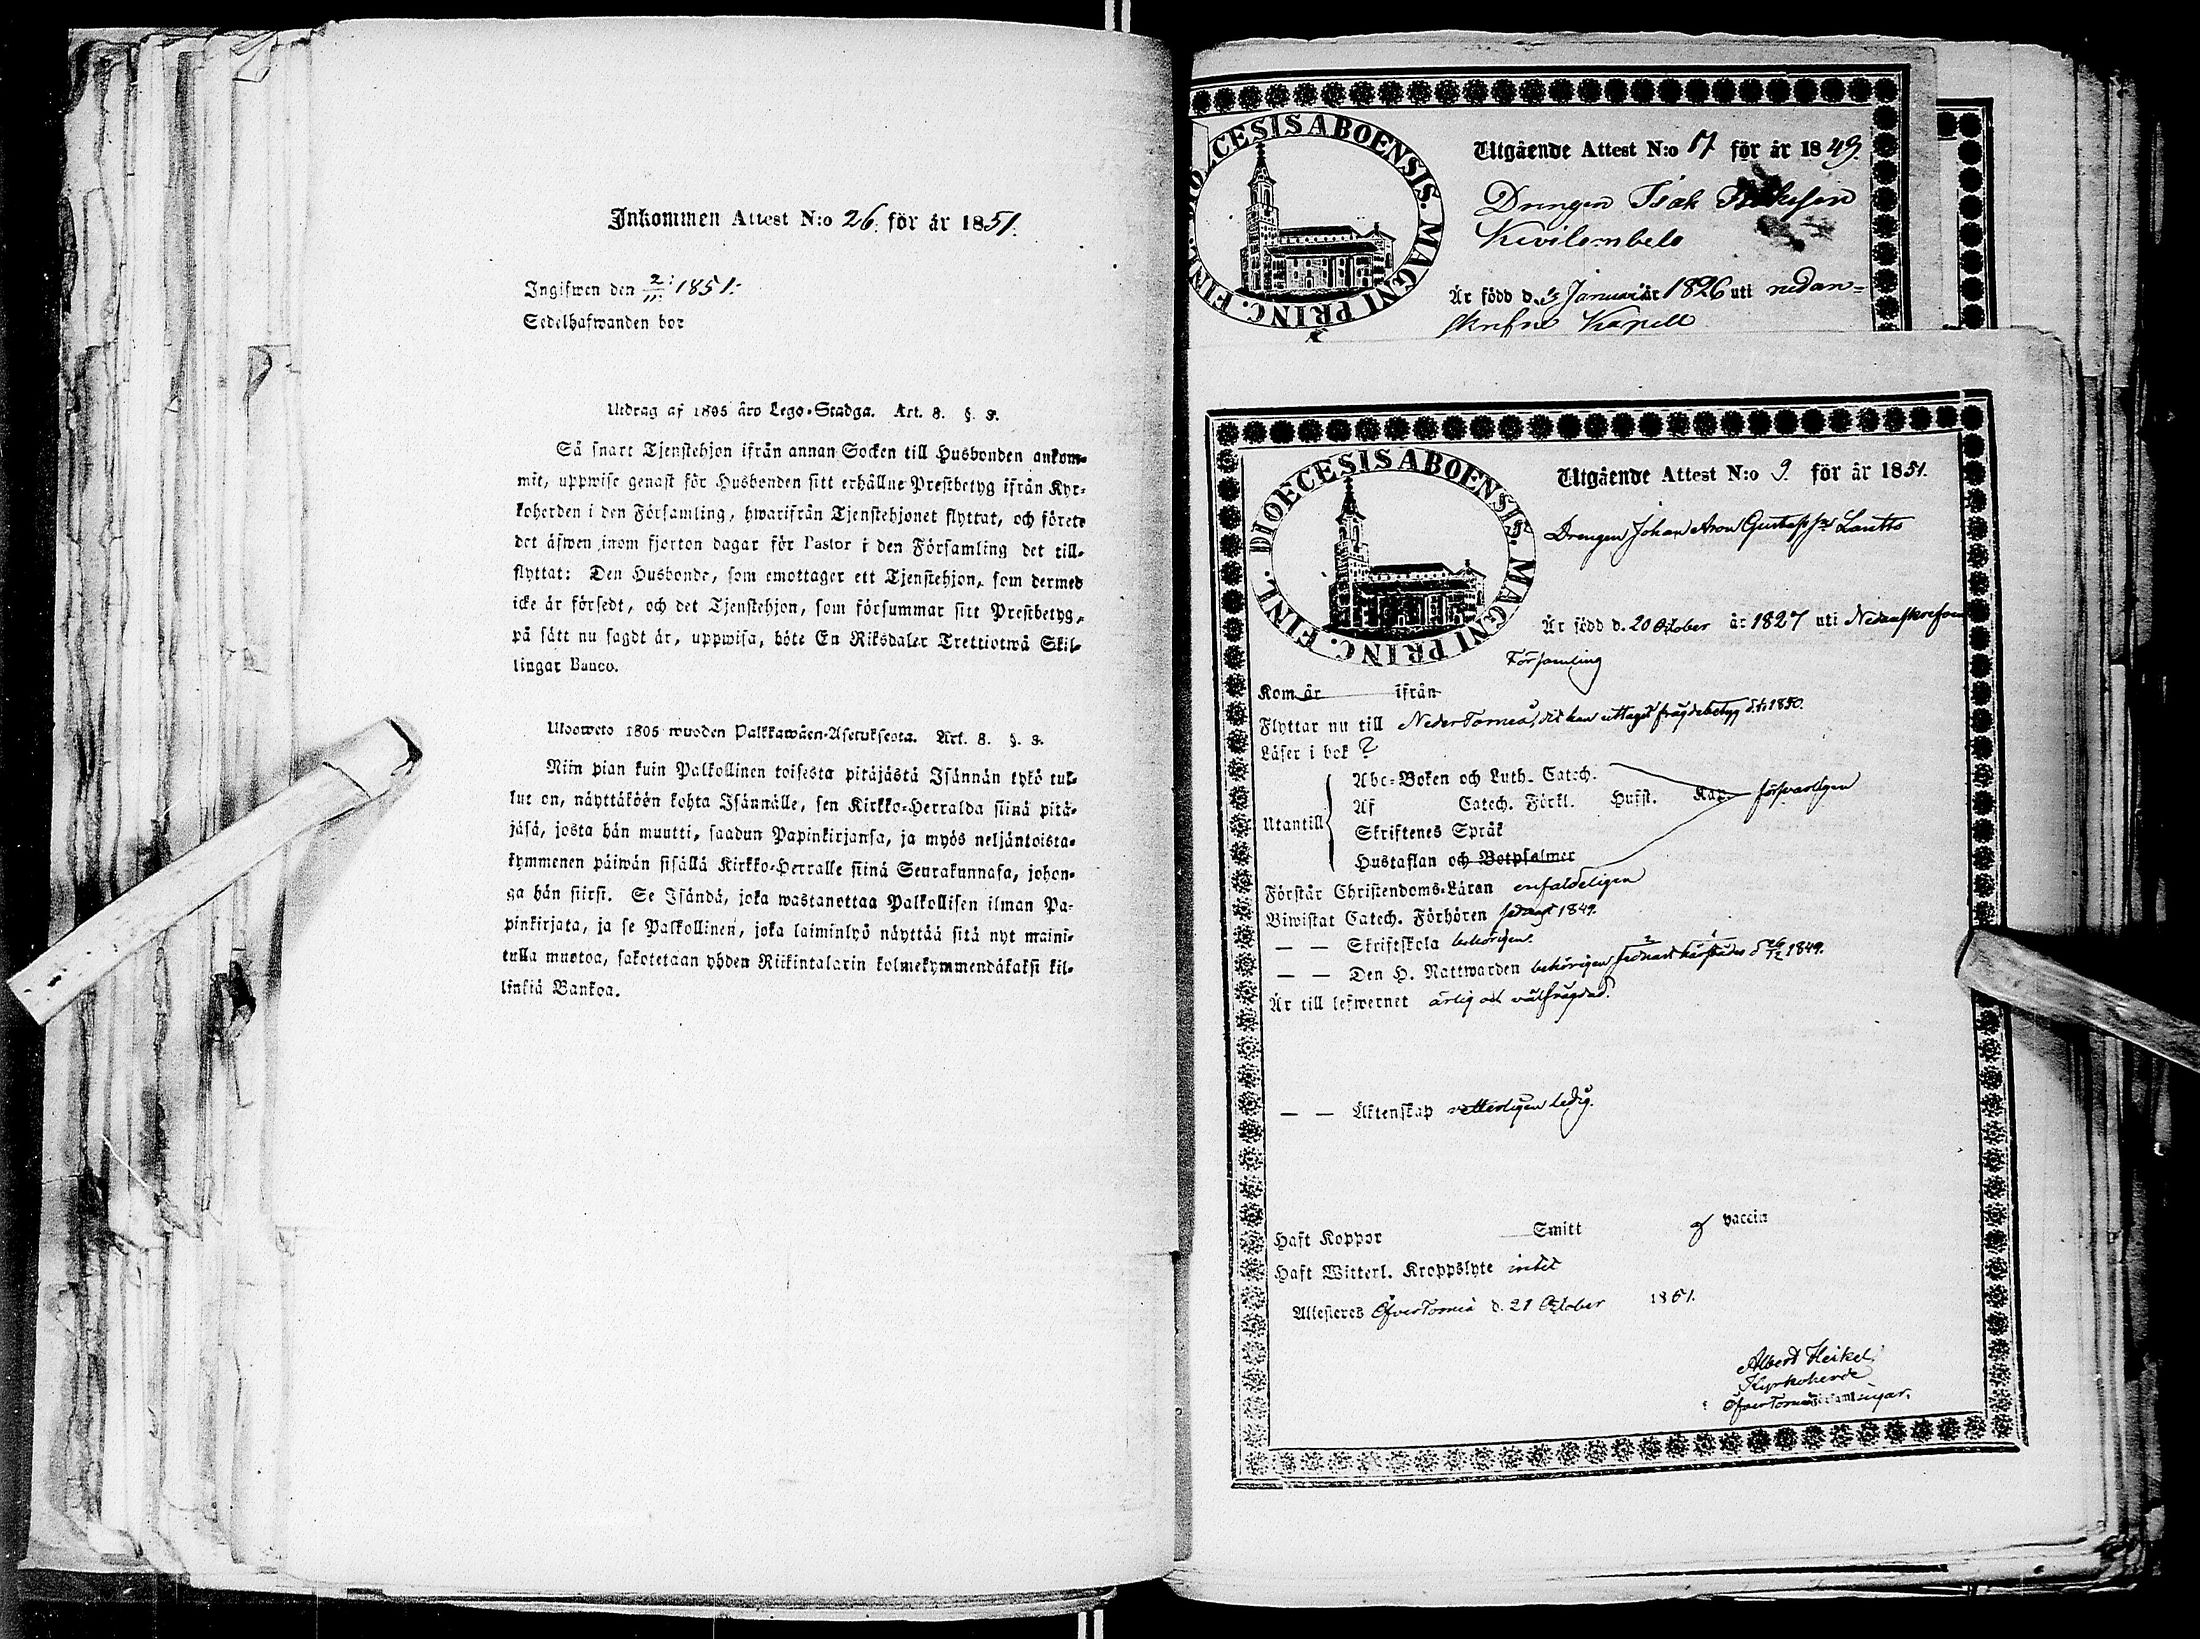 Inkommen Attest N:o 26. för år 1851.
Ingifwen den 2/11 1851.
Sedelhafwanden bor
Utdrag af 1805 års Lego-Stadga. Art. 8. §. 3.
Så snart Tjenstehjon ifrån annan Socken till Husbonden ankom-
mit, uppwise genast för Husbonden sitt erhållne Prestbetyg ifrån Kyr-
koherden i den Församling, hwarifrån Tjenstehjonet flyttat, och förete
det äfwen inom fjorton dagar för Pastor i den Församling det till-
flyttat: Den Husbonde, som emottager ett Tjenstehjon, som dermed
icke är försedt, och det Tjenstehjon, som försummar sitt Prestbetyg,
på sätt nu sagdt är, uppwisa, böte En Riksdaler Trettiotwå Skil-
lingar Banco.
Ulosweto 1805 wuoden Palkkawäen-Asetuksesta. Art. 8. §. 3.
Niin pian kuin Palkollinen toisesta pitäjästä Isännän tykö tul-
lut on, näyttäköön kohta Isännälle, sen Kirkko-Herralda siinä pitä-
jäsä, josta hän muutti, saadun Papinkirjansa, ja myös neljäntoista-
kymmenen päiwän sisällä Kirkko-Herralle siinä Seurakunnasa, johon-
ga hän siirsi. Se Isändä, joka wastanottaa Palkollisen ilman Pa-
pinkirjata, ja se Palkollinen, joka laiminlyö näyttää sitä nyt maini-
tulla muotoa, sakotetaan yhden Riikintalarin kolmekymmendäkaksi kil-
linkiä Bankoa.
DIOECESIS ABOENSIS. MAGNI PRINC. FINL.
Utgående Attest N:o 17 för år 1849.
Drengen Isak
Är född d. 3 Januari år 1826 uti nedan-
skrefne Kapell
DIOECESIS ABOENSIS. MAGNI PRINC. FINL.
Utgående Attest N:o 9. för år 1851.
Drengen Johan Aron Gustafss:n Lantto
Är född d. 20 October år 1827 uti Nedanskrefna
Församling
Kom år ifrån
Flyttar nu till Neder Torneå, dit han uttagit frägdebetyg 1850.
Läser i bok ?
Utantill
Abc-Boken och Luth. Catech.
Af Catech. Förkl. Hufst. Kap. försvarligen
Skriftenes Språk
Hustaflan och Botpsalmer
Förstår Christendoms-Läran enfaldeligen
Biwistat Catech. Förhören sednast 1849.
— — Skriftskola behörigen.
— — Den H. Nattwarden behörigen, sednast härstädes d 26/12 1849.
Är till lefwernet ärlig och välfrägdad.
— — Äktenskap vetterligen ledig.
Haft Koppor Smitt vaccin
Haft Witterl. Kroppslyte intet
Attesteres ÖfverTorneå d. 21 October 1851.
Albert Heikel
Kyrkoherde
ÖfverTorneå Församlingar.